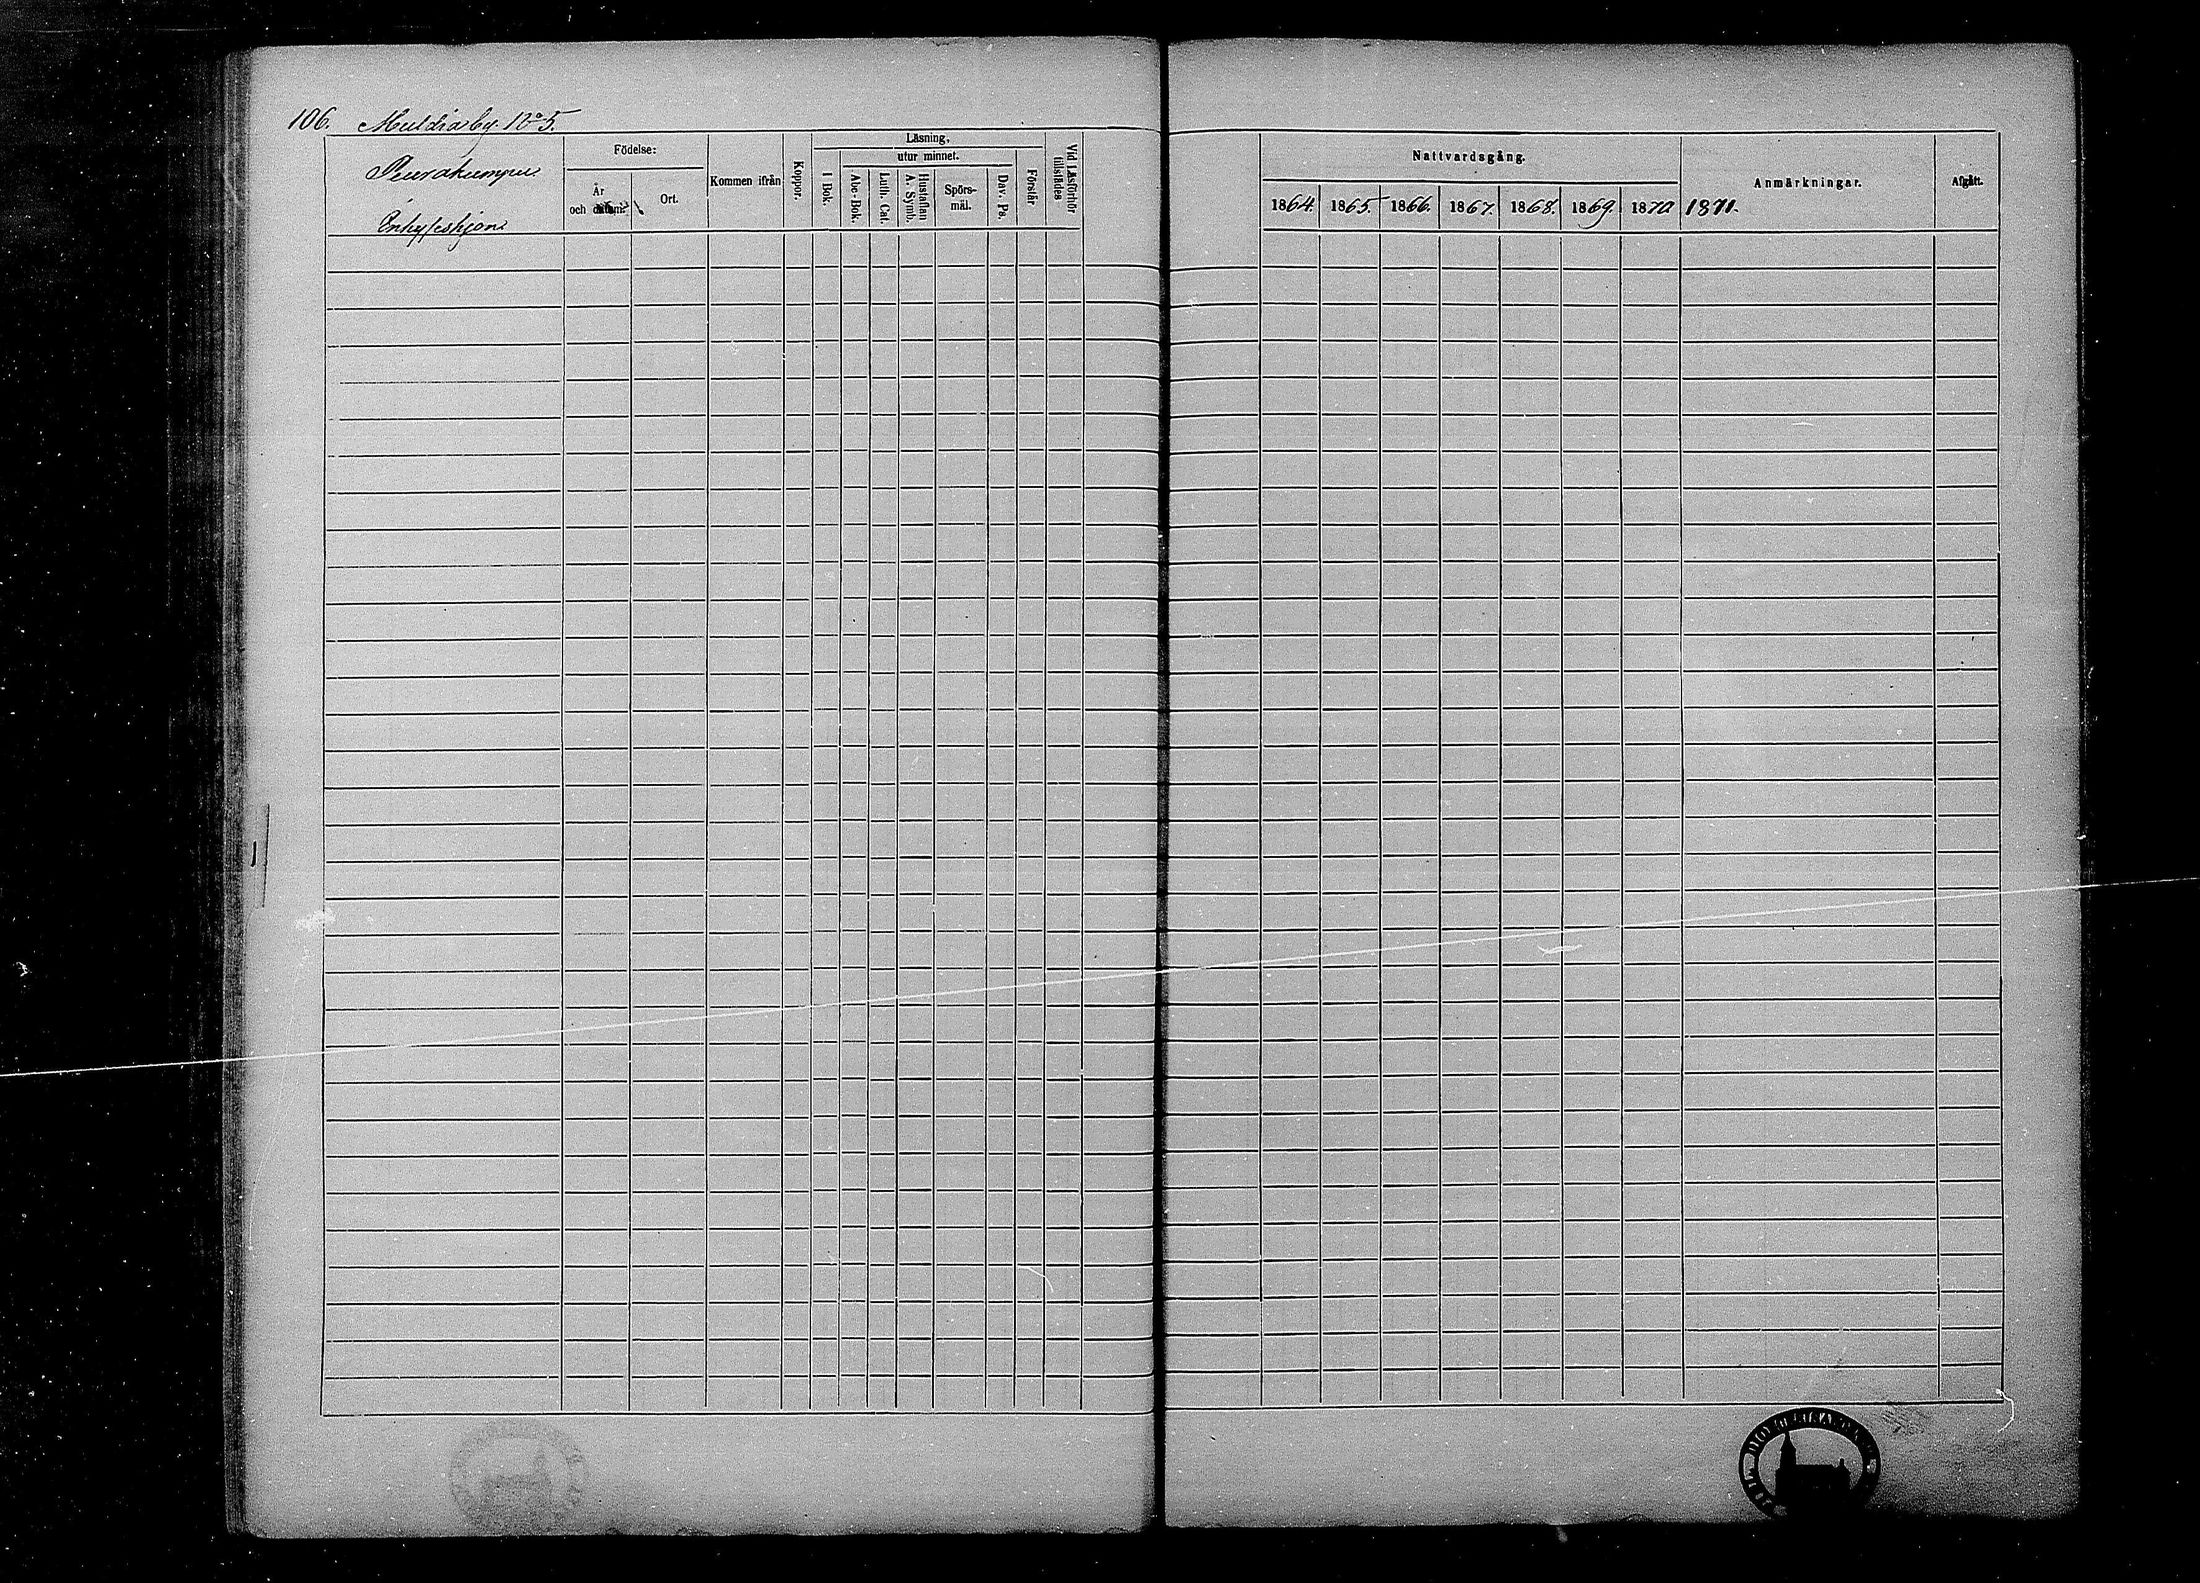 106. Muldiaby. No 5.
Peurakumpu
Inhysehjon
Födelse:
År
och datum.
Ort.
Kommen ifrån
Koppor.
Läsning,
utur minnet.
I Bok.
Abc-Bok.
Luth. Cat.
Hustaflan
A. Symb.
Spörs-
mål.
Dav. Ps.
Förstår
Vid Läsförhör
tillstädes
Nattvardsgång.
1864. 1865. 1866. 1867. 1868. 1869. 1870 1871.
Anmärkningar.
Afgått.